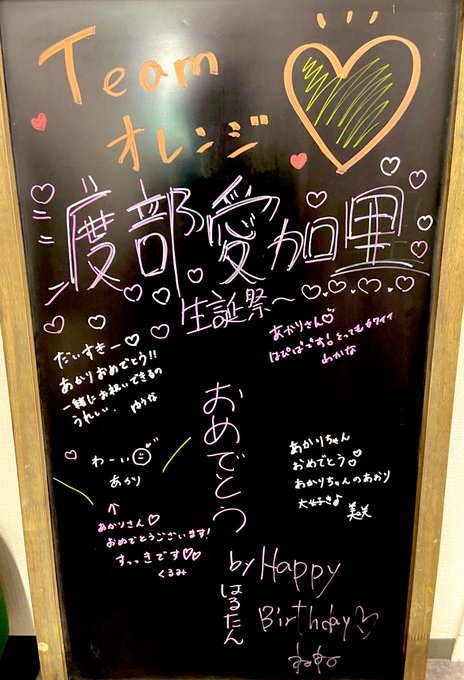 Team
オレンジ
渡部愛加里
生誕祭〜
だいすきー♡
あかりおめでとう!!
一緒にお祝いできるの
うれしい.
ゆうな
あかりさん♡
はぴばです!とってもカワイイ
わかな
おめでとう
by はるたん
わーい
あかり
↑
あかりさん♡
おめでとうございます!
すっっきです♡♡
くるみ
あかりちゃん
おめでとう
あかりちゃんのあおり
大好きよ
美咲
Happy
Birthday♡